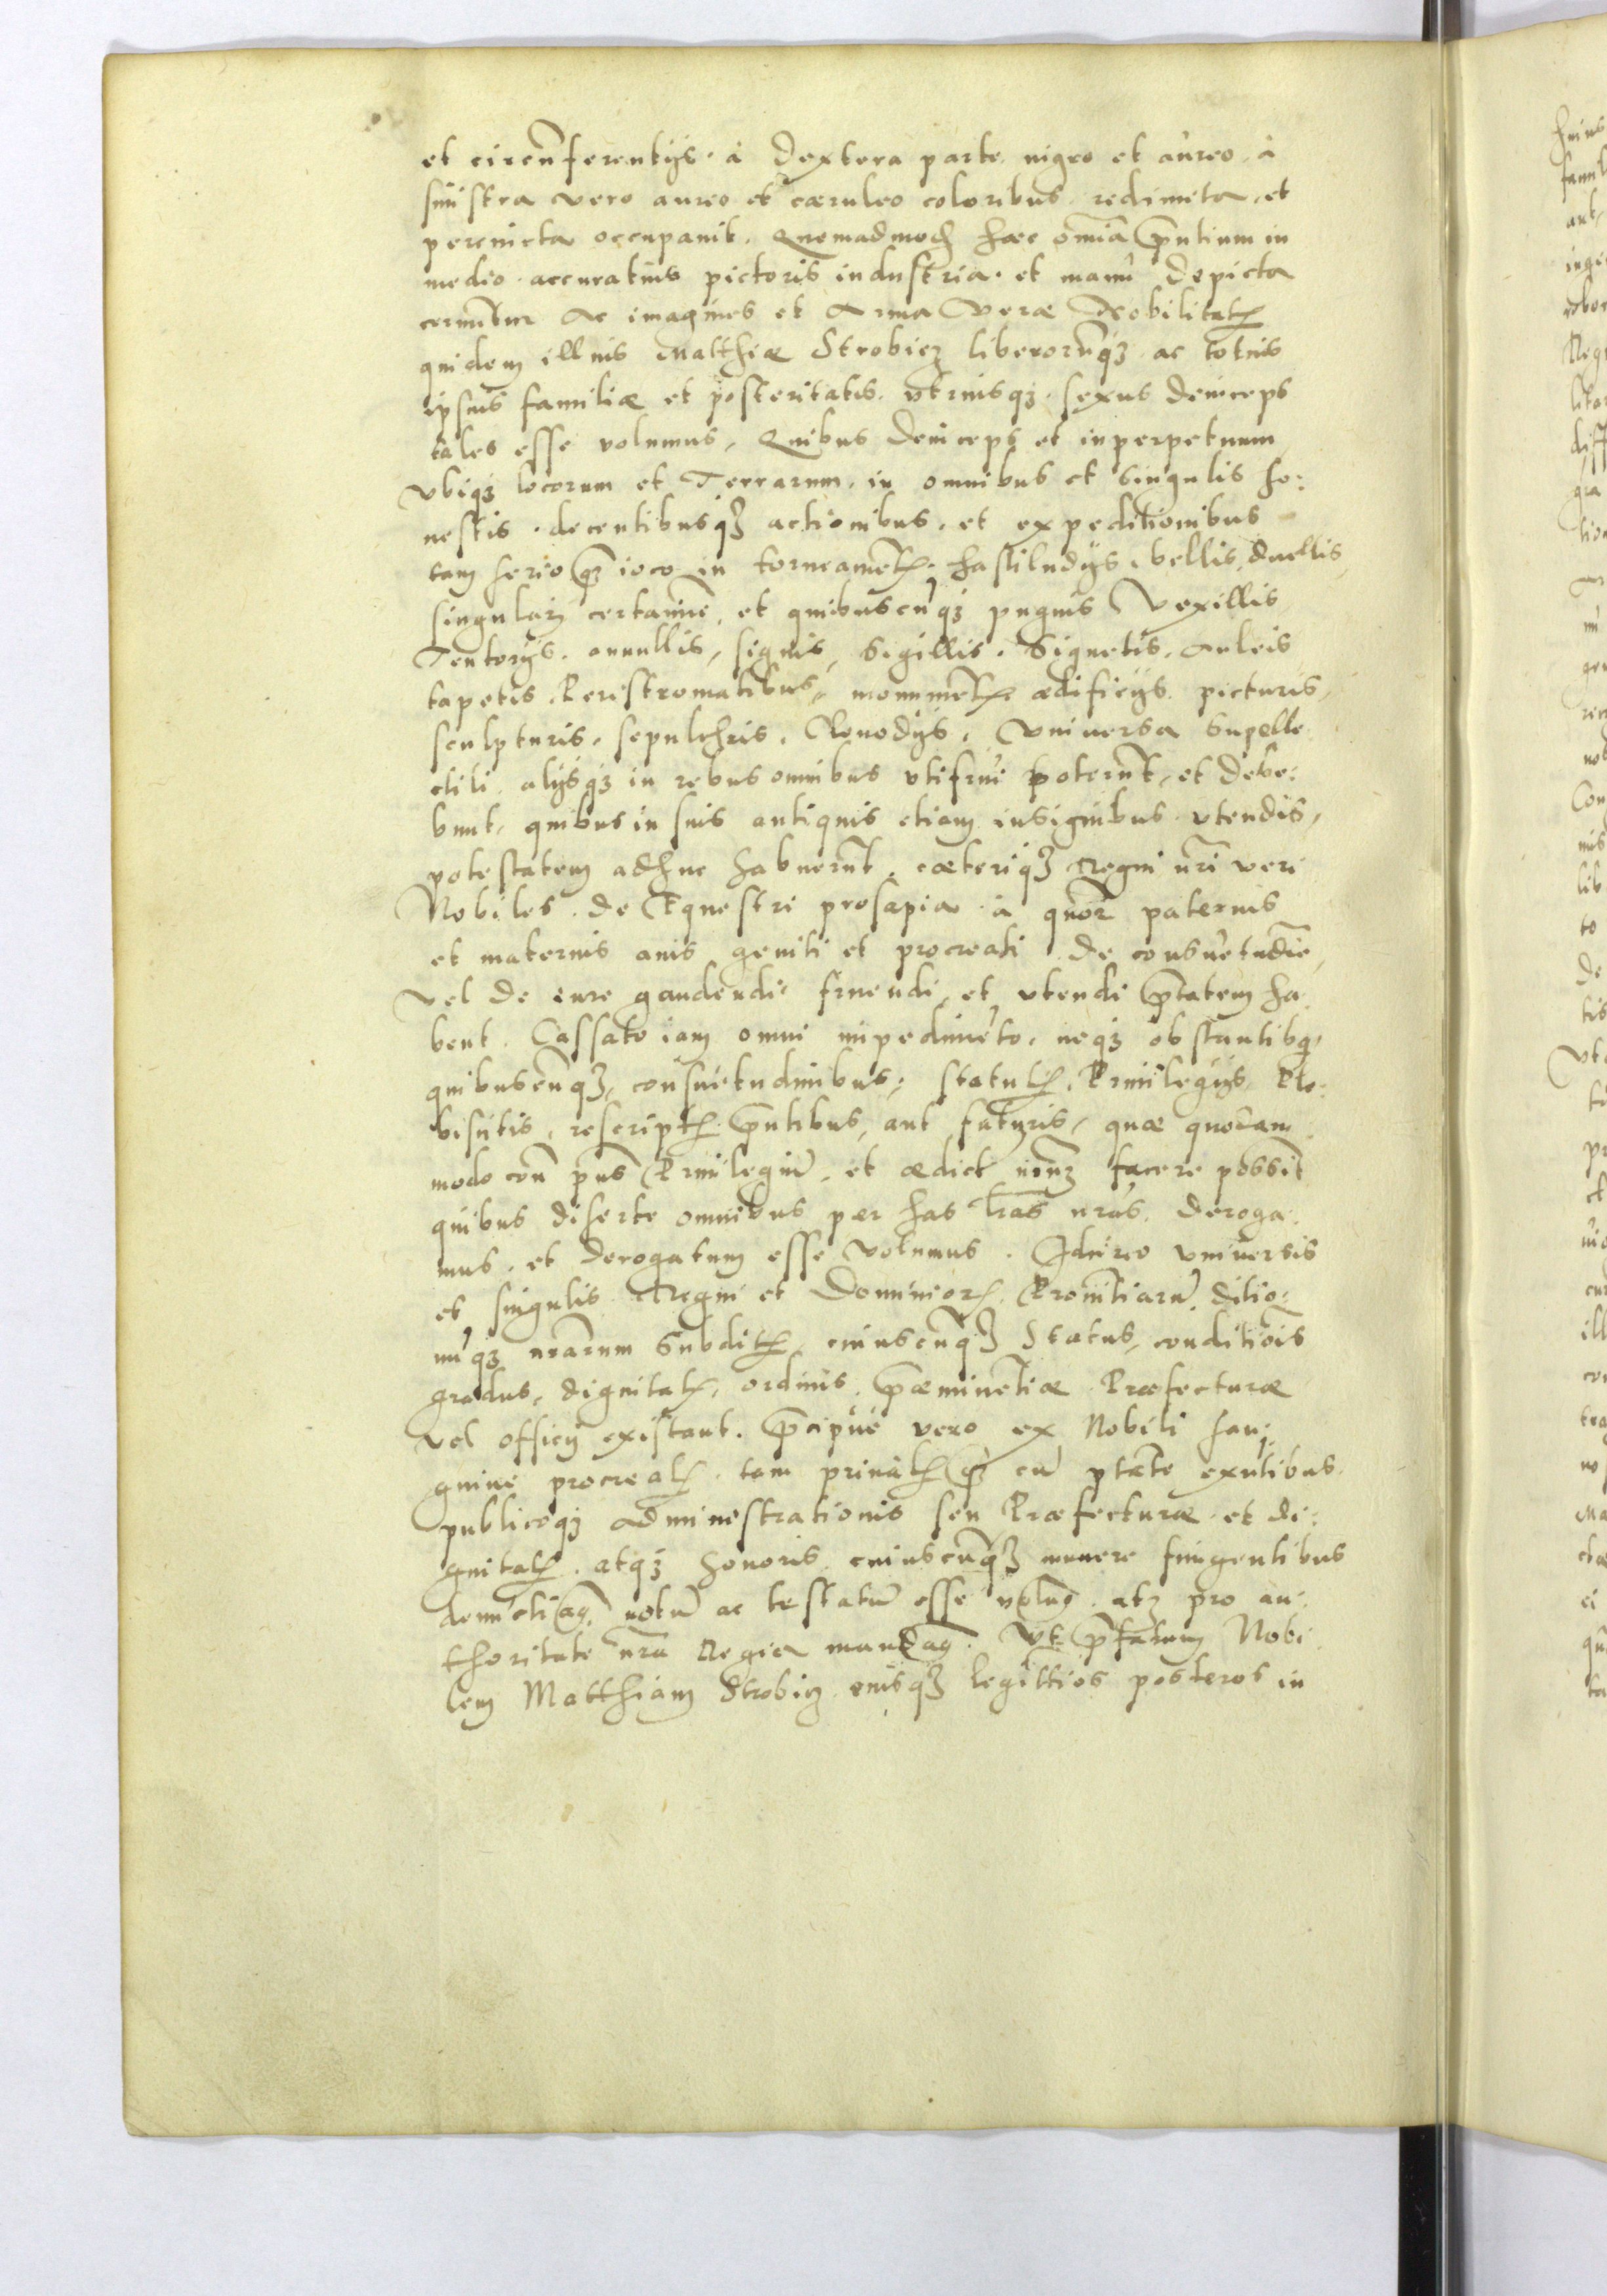 et circũferentijs. à dextera parte nigro et aureo, à
sinistra vero aureo et cæruleo coloribus redimita, et
percincta occupauit. Quemadmodũ hæc omĩa pñtium in
medio accuratius pictoris industria et manu depicta
cernuntur Ac imagines et Arma Veræ Nobilitatis
quidem illius Matthiæ Strobicz liberorũq3 ac totius
ipsius familiæ et posteritatis vtriusq3 sexus deinceps
tales esse volumus, Quibus deinceps et inperpetuum
Vbiq3 locorum et Terrarum, in omnibus et Singulis ho:
nestis decentibusq3 actionibus, et expeditionibus
tam serio q3 ioco in torneamẽtis, hastiludijs, bellis, duellis,
singulari certamine, et quibuscũq3 pugnis Vexillis
Tentorijs. annullis, signis, Sigillis, Signetis, Auleis
tapetis. Peristromatibus, monumẽtis ædificijs picturis,
sculpturis, sepulchris, Clenodijs, Vniuersa Supelle
ctili alijsq3 in rebus omnibus vtifrui poterũt, et debe:
bunt, quibus in suis antiquis etiam insignibus vtendis,
potestatem adhuc habuerũt, cæteriq3 Regni nr̃i veri
Nobiles de Equestri prosapia à quor̃ paternis
et maternis auis geniti et procreati de consuetudĩe,
vel de iure gaudendi fruendi, et vtendi ptãtem ha
bent. Cassato iam omni impedimẽto, neq3 obstantibq,
quibuscũq3, consuetudinibus, statutis, Priuilegijs, Ple:
biscitis, rescriptis pñtibus, aut futuris, quæ quouam
modo cõ pñs Priuilegiũ, et ædict facere possĩt
quibus diserte omnibus per has lr̃as nr̃as, deroga:
mus, et derogatum esse volumus. Idcirco vniuersis
et singulis Regni et Dominior, Prouintiarũ, ditio:
nũq3 nr̃arum Subditis, cuiuscũq3 Status, conditiõis
gradus, dignitatis, ordinis, præminẽtiæ Præfecturæ
vel officij existant. p̃cipue vero ex Nobili san:
guine procreatis, tam priuatis q3 cũ ptãte exñtibus
publiceq3 administrationis seu Præfecturæ et di:
gnitatis, atq3 honoris cuiuscũq3 munere fungentibus
notũ ac testatũ esse volũq, atq3 pro au:
thoritate nr̃a Regia mandaq. Vt p̃fatum Nobi
lem Matthiam Strobicz eiusq3 legittĩos posteros in